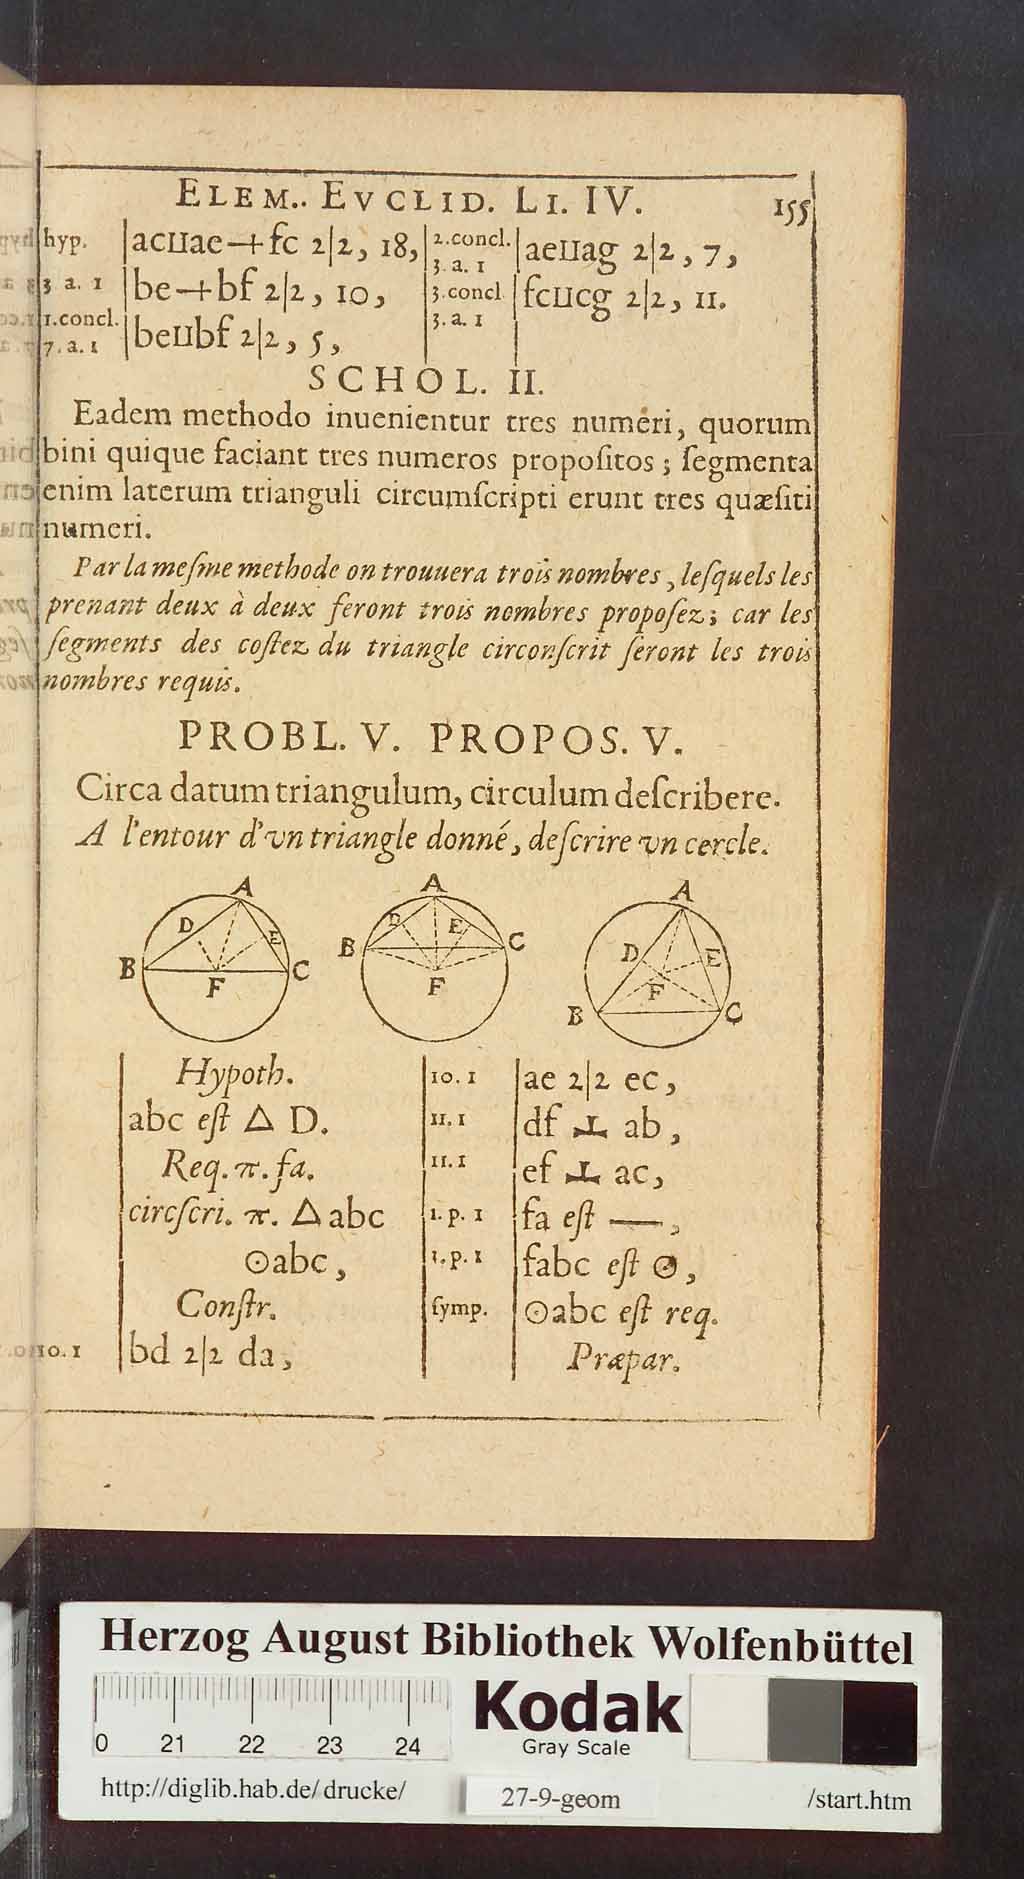 ELEM.. EVCLID. LI. IV. 155
hyp. | acuae-+fc 2|2, 18,
3. a. 1 | be-+bf 2|2, 10,
1.concl. 7. a. 1 | beubf 2|2, 5,
2.concl. 3. a. 1 | aeuag 2|2, 7,
3.concl. 3. a. 1 | fcucg 2|2, 11.
SCHOL. II.
Eadem methodo inuenientur tres numeri, quorum
bini quique faciant tres numeros propoſitos; ſegmenta
enim laterum trianguli circumſcripti erunt tres quæſiti
numeri.
Par la meſme methode on trouuera trois nombres, leſquels les
prenant deux à deux feront trois nombres propoſez; car les
ſegments des coſtez du triangle circonſcrit ſeront les trois
nombres requis.
PROBL. V. PROPOS. V.
Circa datum triangulum, circulum deſcribere.
A l'entour d'vn triangle donné, deſcrire vn cercle.
A D E B F C
A D E B F C
A D E F B C
Hypoth.
abc eſt △ D.
Req. π. fa.
circſcri. π. △ abc
⊙abc,
Conſtr.
10. 1 | bd 2|2 da,
10. 1 | ae 2|2 ec,
11. 1 | df ⊥ ab,
11. 1 | ef ⊥ ac,
1. p. 1 | fa eſt —,
3. p. 1 | fabc eſt ⊙,
ſymp. | ⊙abc eſt req.
Præpar.
Herzog August Bibliothek Wolfenbüttel
0 21 22 23 24
Kodak
Gray Scale
http://diglib.hab.de/drucke/ 27-9-geom /start.htm